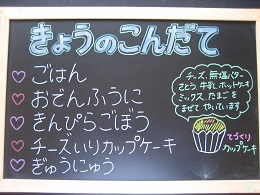 きょうのこんだて
ごはん
おでんふうに
きんぴらごぼう
チーズいりカップケーキ
ぎゅうにゅう
チーズ、無塩バター
さとう、牛乳、ホットケーキ
ミックス、たまごを
まぜて やいています
てづくり
カップケーキ